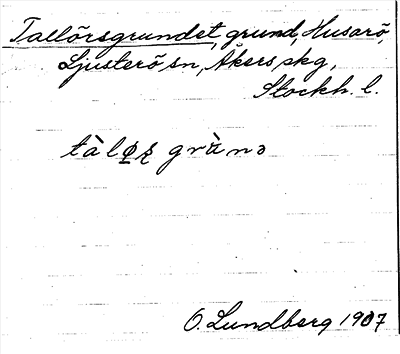 Tallörsgrundet, grund, Husarö,
Ljusterö sn, Åkers skg,
Stockh. l.
tàlø̨ʂ grùnə
O. Lundberg 1907